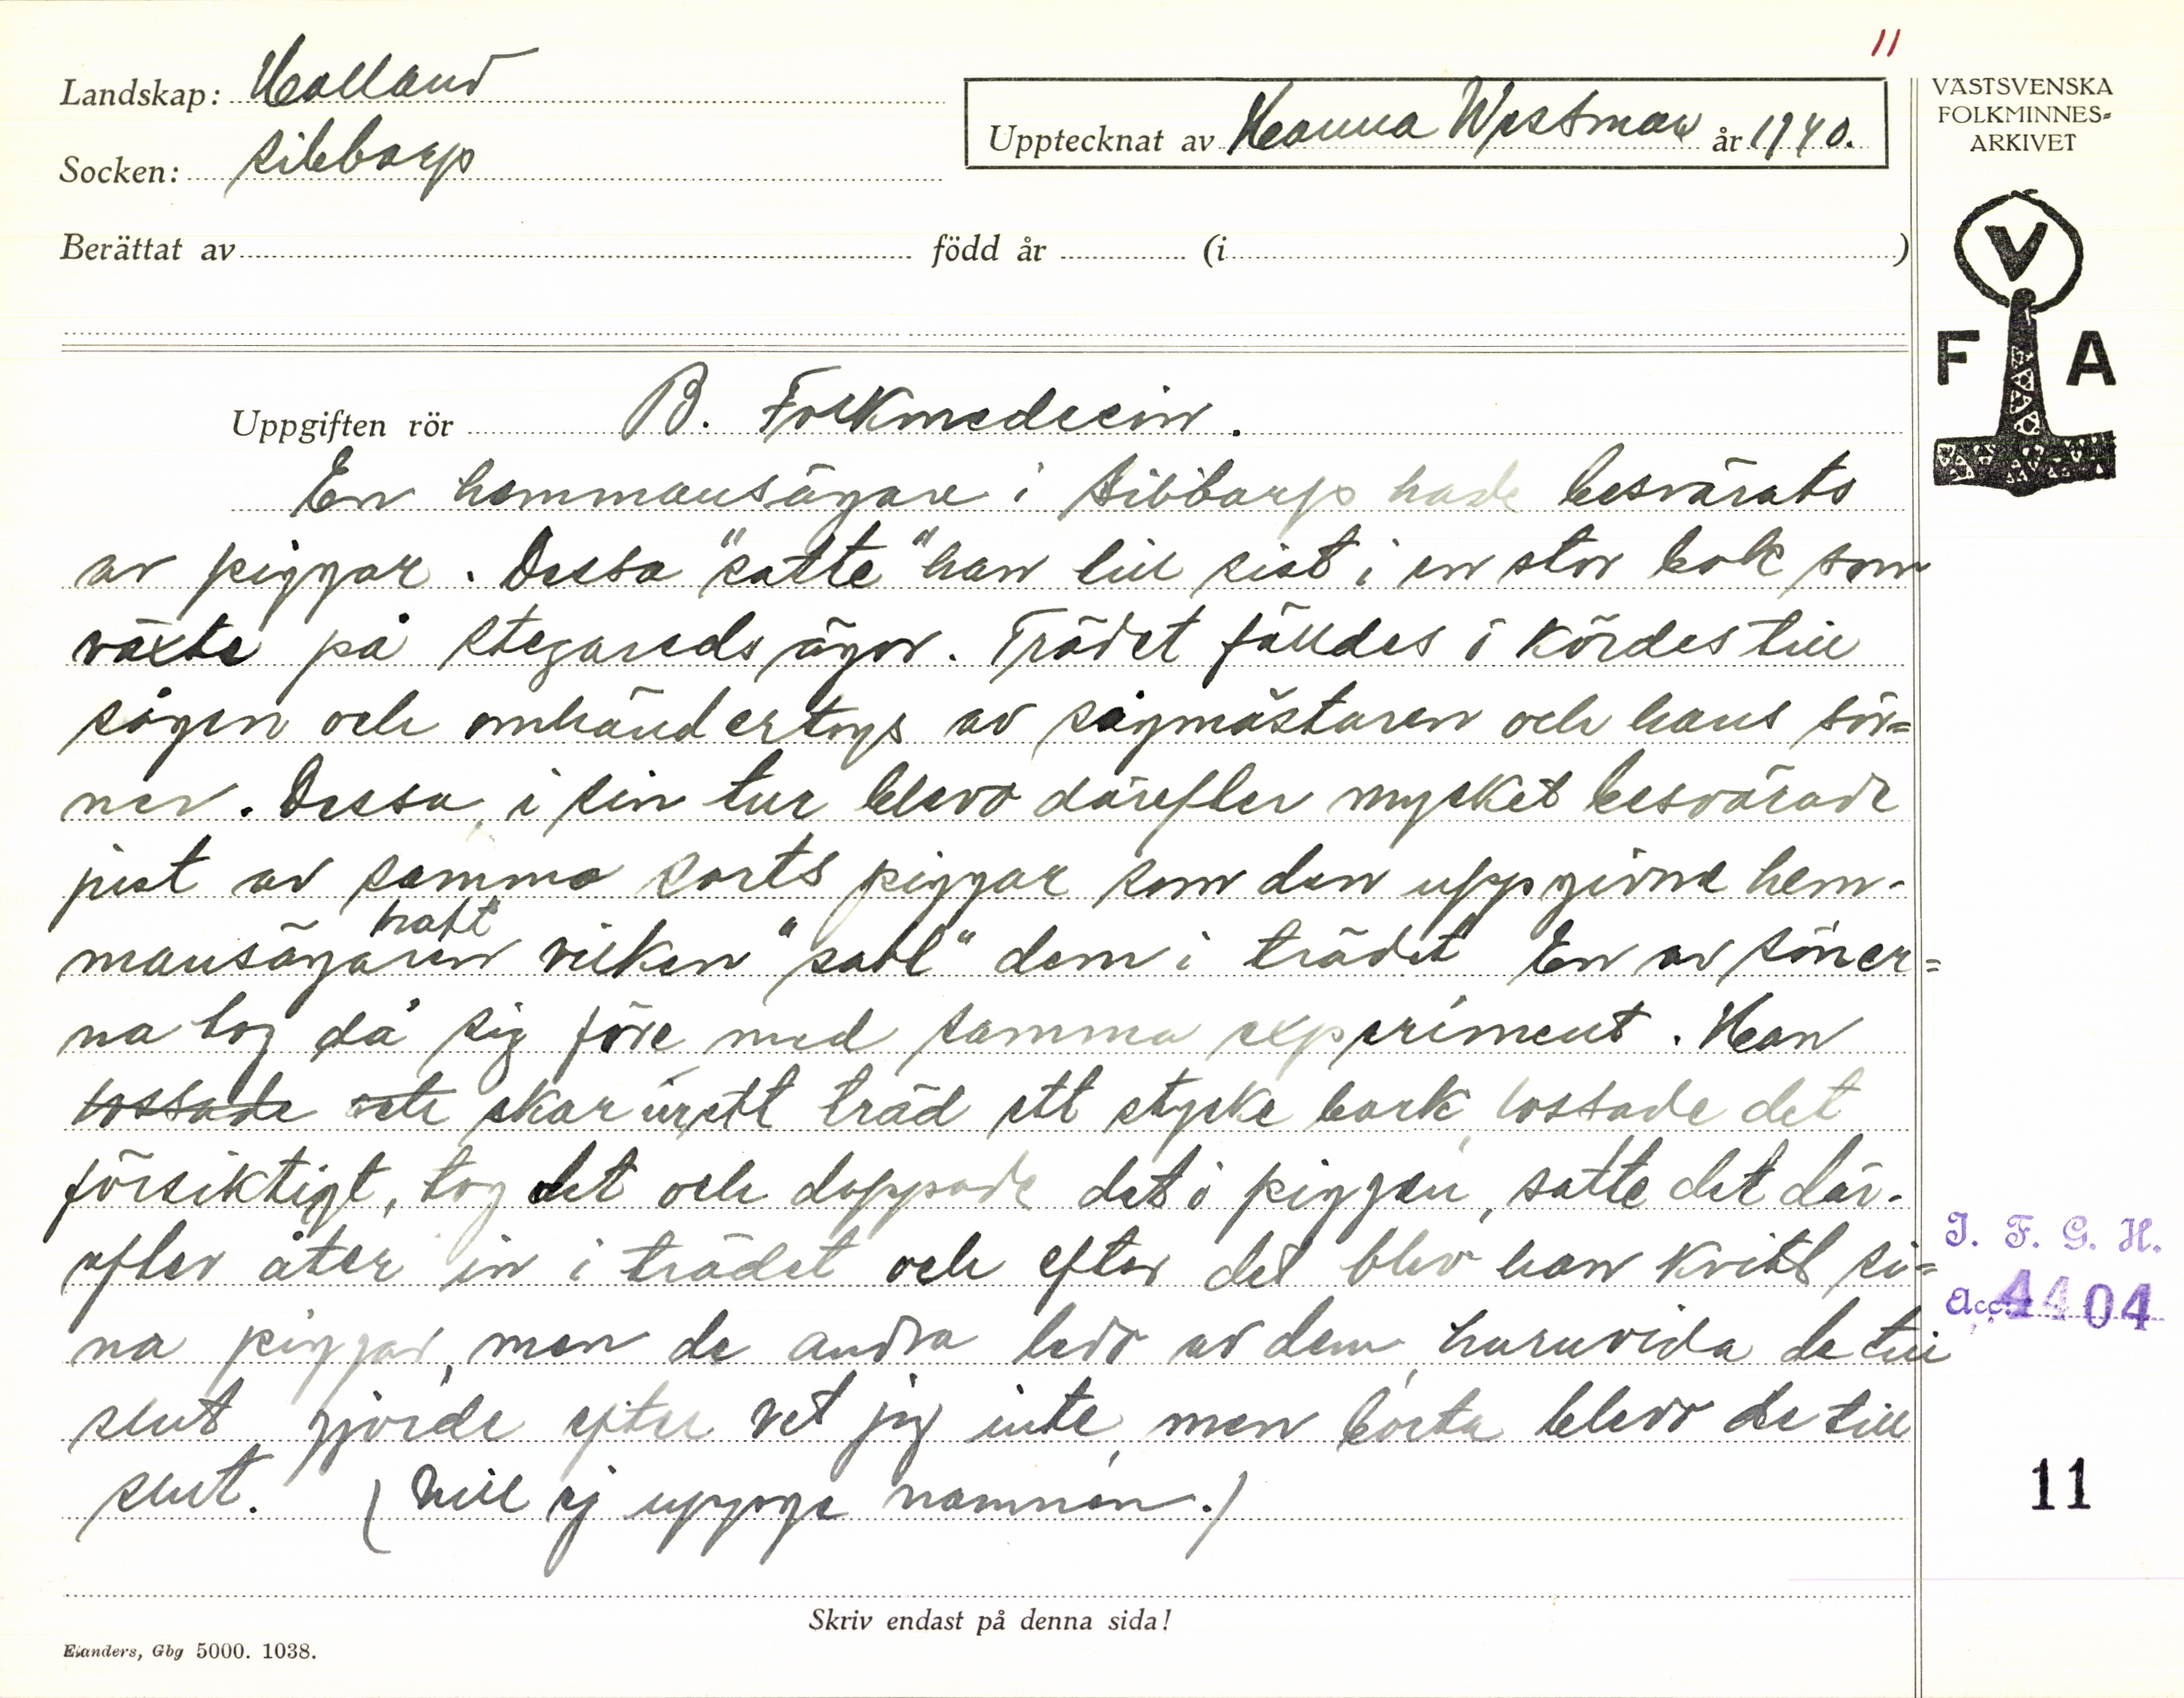 11
Landskap: Halland
Socken: Sibbarp
Upptecknat av Hanna Westman år 1940.
VÄSTSVENSKA
FOLKMINNES=
ARKIVET
Berättat av född år (i )
V
F A
Uppgiften rör B. Folkmedecin.
En hemmansägare i Sibbarp hade besvärats
av piggar. Dessa "satte" han till sist i en stor bok som
växte på Stegareds ägor. Trädet fälldes o kördes till
sågen och omhändertogs av sågmästaren och hans sör=
ner. Dessa, i sin tur blevo därefter mycket besvärade
just av samma sorts piggar som den uppgivne hem-
mansägaren haft vilken "satt" dem i trädet En av söner=
na tog då sig före med samma experiment. Han
lossade och skar ur ett träd ett stycke bark, lossade det
försiktigt, tog det och doppade det i piggen, satte det där-
efter åter in i trädet och efter det blev han kvitt si=
na piggar, men de andra ledo av dem, huruvida de till
slut gjorde efter vet jag inte, men borta blevo de till
slut. (Vill ej uppge namnen.)
I. F. G. H.
Acc. 4404
11
Skriv endast på denna sida!
Elanders, Gbg 5000. 1038.